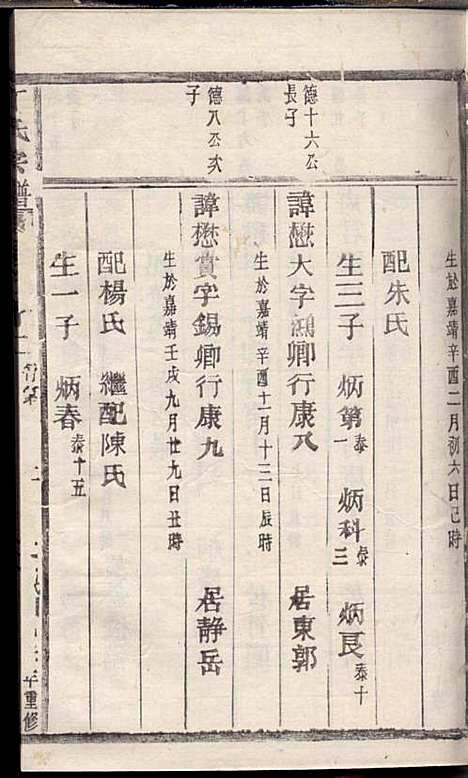 生於嘉靖辛酉二月初六日巳時
配朱氏
生三子 炳第泰一 炳科泰三 炳艮泰十
德十六公長子
諱懋大字鴻卿行康八 居東郭
生於嘉靖辛酉十一月十三日辰時
德八公次子
諱懋賞字錫卿行康九 居靜岳
生於嘉靖壬戌九月廿九日丑時
配楊氏 繼配陳氏
生一子 炳春泰十五
丁氏宗譜
年重修